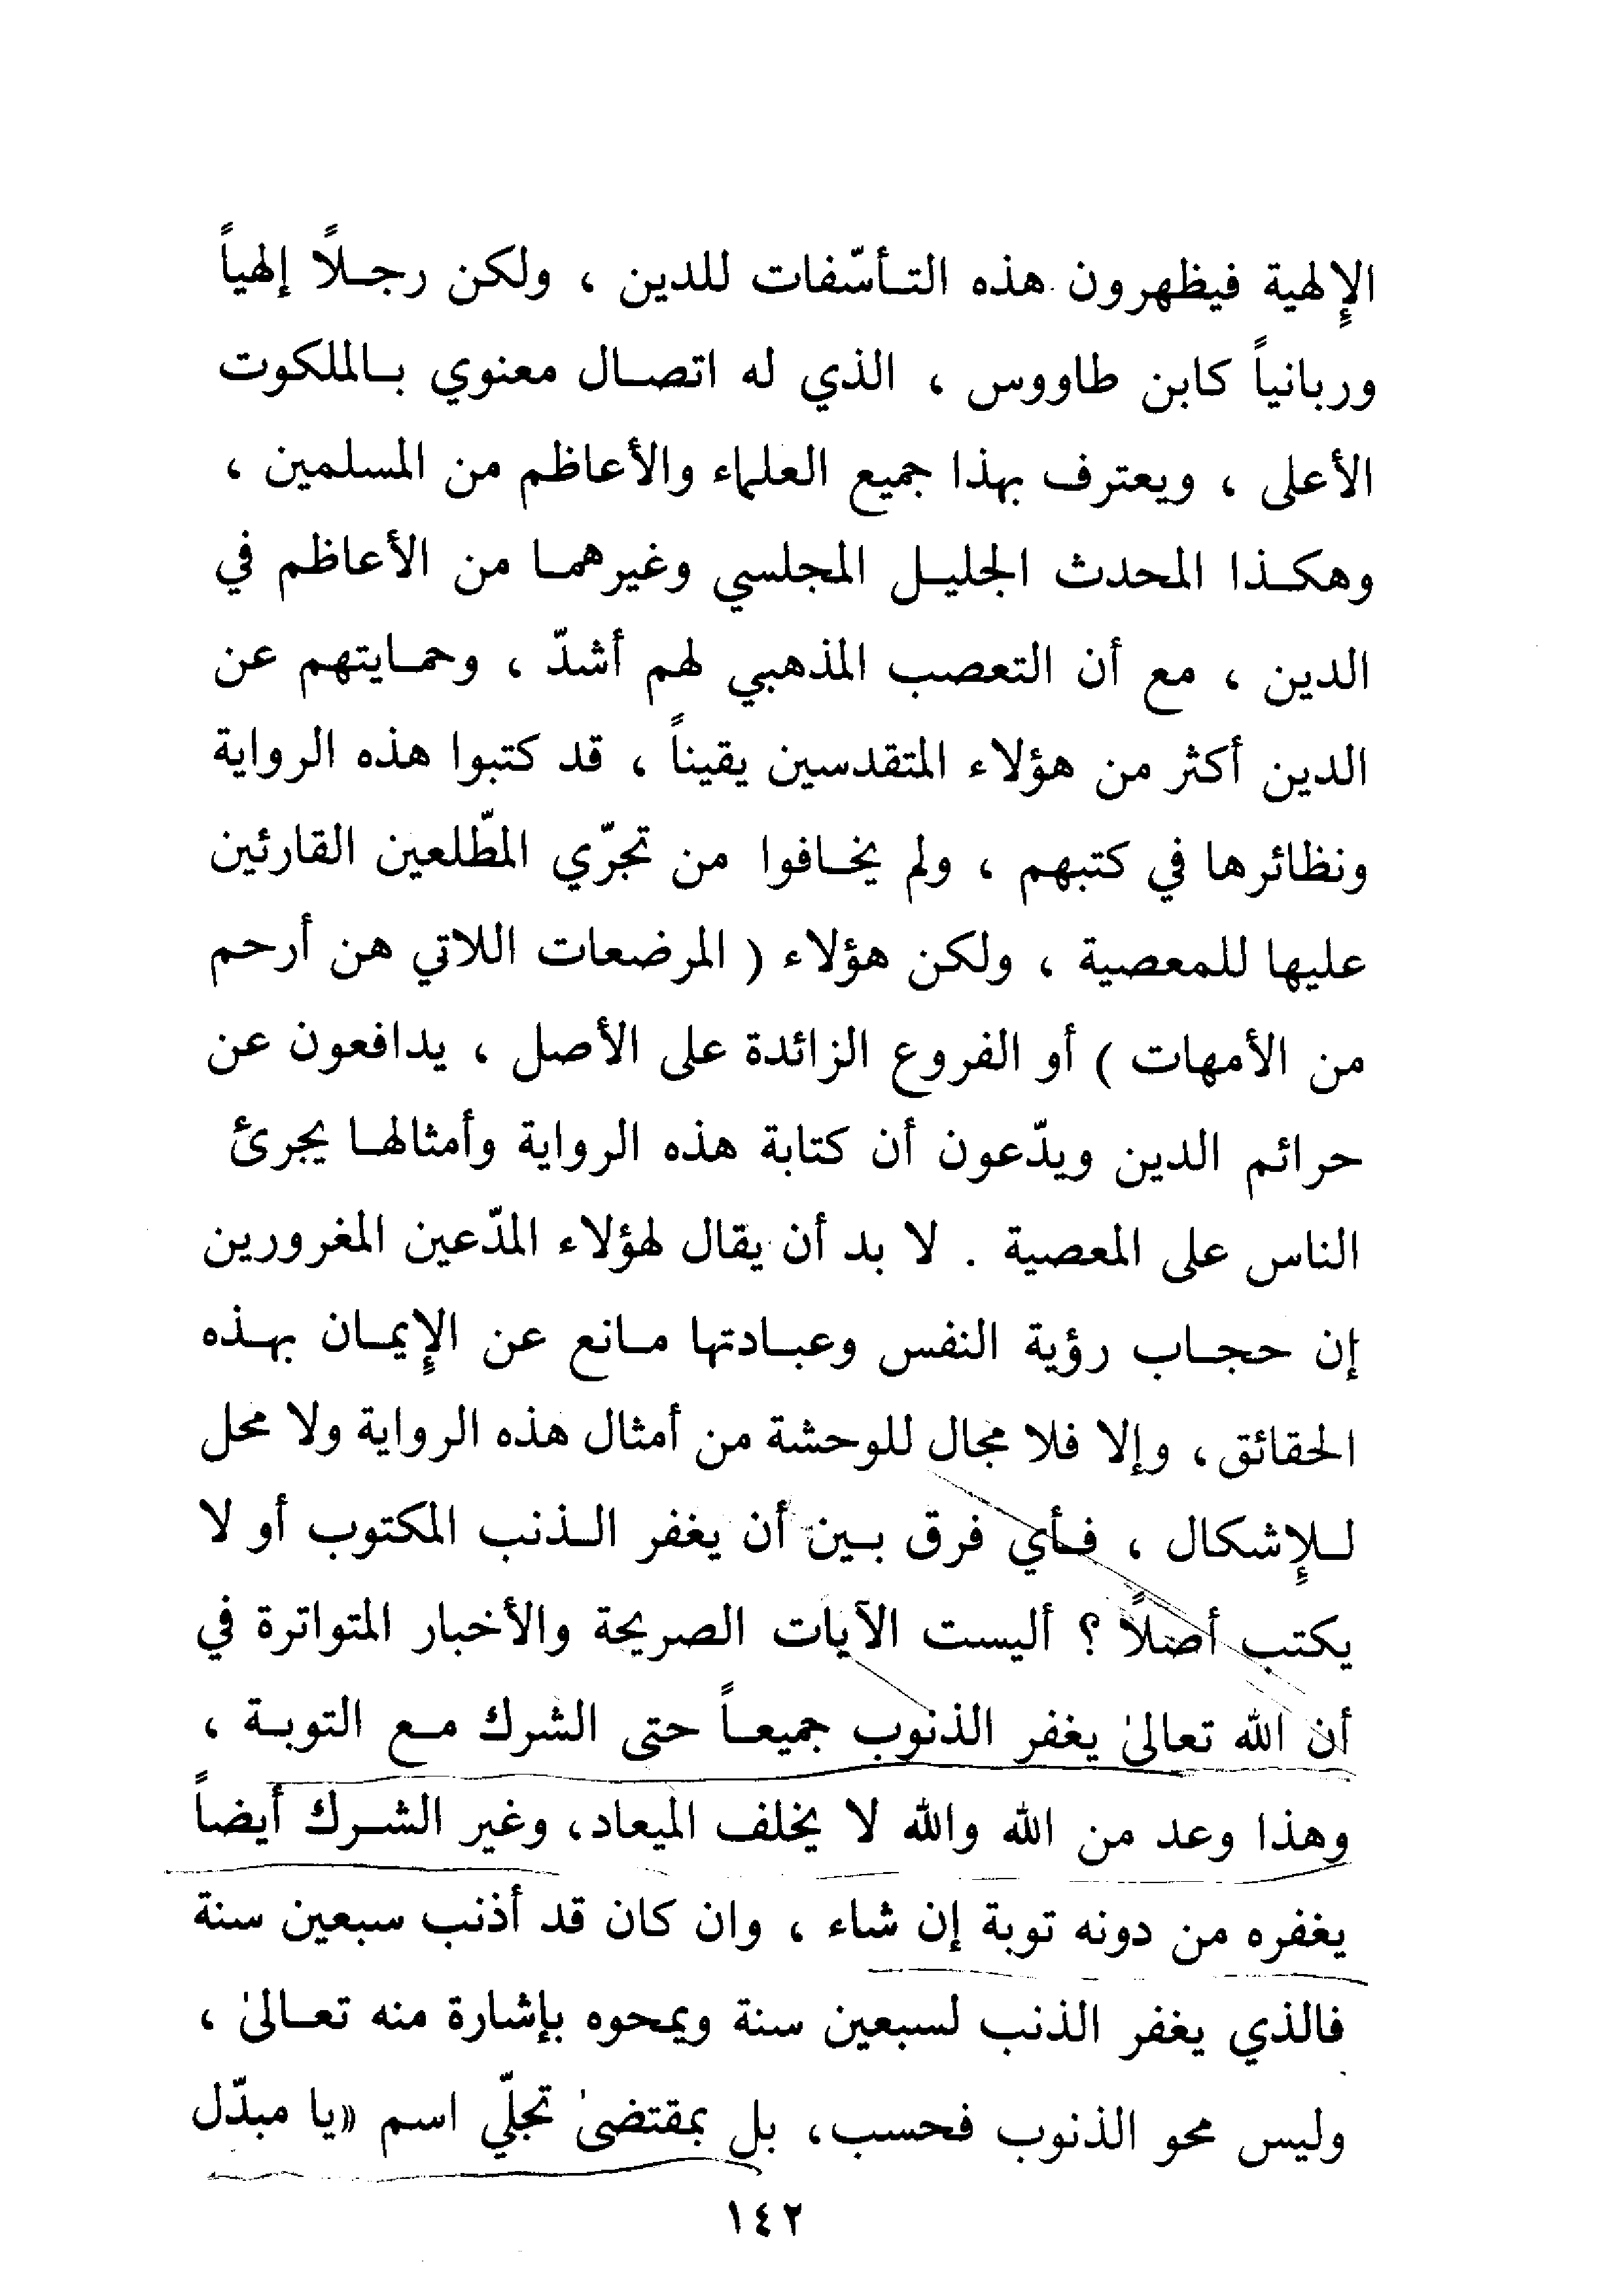 الإِلهية فيظهرون هذه التـأسّفات للدين ، ولكن رجـلاً إلهياً
وربانياً كابن طاووس ، الذي له اتصـال معنوي بـالملكوت
الأعلى ، ويعترف بهذا جميع العلماء والأعاظم من المسلمين ،
وهكـذا المحدث الجليـل المجلسي وغيرهمـا من الأعاظم في
الدين ، مع أن التعصب المذهبي لهم أشدّ ، وحمـايتهم عن
الدين أكثر من هؤلاء المتقدسين يقيناً ، قد كتبوا هذه الرواية
ونظائرها في كتبهم ، ولم يخـافوا من تجرّي المطّلعين القارئين
عليها للمعصية ، ولكن هؤلاء ( المرضعات اللاتي هن أرحم
من الأمهات ) أو الفروع الزائدة على الأصل ، يدافعون عن
حرائم الدين ويدّعون أن كتابة هذه الرواية وأمثالهـا يجرئ
الناس على المعصية . لا بد أن يقال لهؤلاء المدّعين المغرورين
إن حجـاب رؤية النفس وعبـادتها مـانع عن الإِيمـان بهـذه
الحقائق، وإلا فلا مجال للوحشة من أمثال هذه الرواية ولا محل
لـلإِشكال ، فـأي فرق بـين أن يغفر الـذنب المكتوب أو لا
يكتب أصلاً ؟ أليست الآيات الصريحة والأخبار المتواترة في
أن الله تعالىٰ يغفر الذنوب جميعـاً حتى الشرك مـع التوبـة ،
وهذا وعد من الله والله لا يخلف الميعاد، وغير الشـرك أيضاً
يغفره من دونه توبة إن شاء ، وان كان قد أذنب سبعين سنة
فالذي يغفر الذنب لسبعين سنة ويمحوه بإشارة منه تعـالىٰ ،
وليس محو الذنوب فحسب، بل بمقتضىٰ تجلّي اسم «يا مبدّل
١٤٢